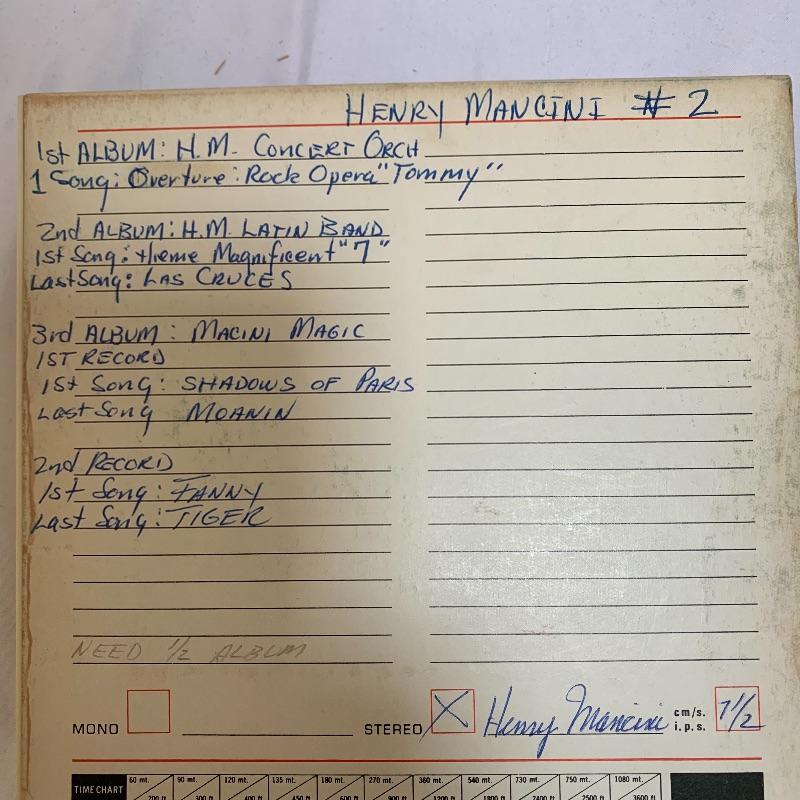 HENRY MANCINI # 2
1st ALBUM: H.M. CONCERT ORCH
1 Song: Overture: Rock Opera "Tommy"
2nd ALBUM: H.M. LATIN BAND
1st Song: theme Magnificent "7"
Last Song: LAS CRUCES
3rd ALBUM: MACINI MAGIC
1ST RECORD
1st Song: SHADOWS OF PARIS
Last Song MOANIN
2nd RECORD
1st Song: FANNY
Last Song: TIGER
NEED 1/2 ALBUM
MONO STEREO X Henry Mancini cm/s. i.p.s. 7 1/2
TIME CHART 60 mt. 90 mt. 120 mt. 135 mt. 180 mt. 270 mt. 360 mt. 540 mt. 730 mt. 750 mt. 1080 mt.